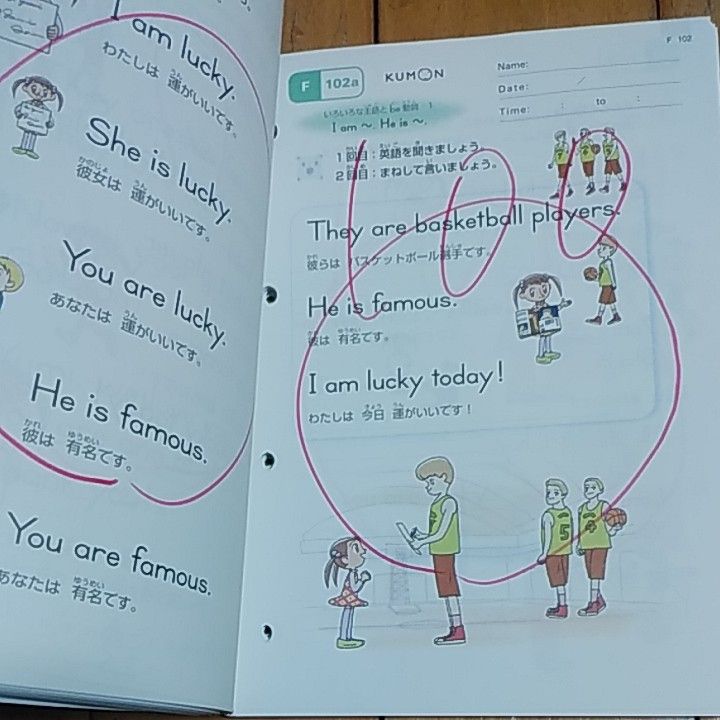 I am lucky.
わたしは 運がいいです。
She is lucky.
彼女は 運がいいです。
You are lucky.
あなたは 運がいいです。
He is famous.
彼は 有名です。
You are famous.
あなたは 有名です。
F 102
F 102a
KUMON
Name:
Date: /
Time: : to :
いろいろな主語とbe動詞 1
I am ～. He is ～.
1回目：英語を聞きましょう。
2回目：まねして言いましょう。
100
They are basketball players.
彼らは バスケットボール選手です。
He is famous.
彼は 有名です。
I am lucky today!
わたしは 今日 運がいいです！
5
4